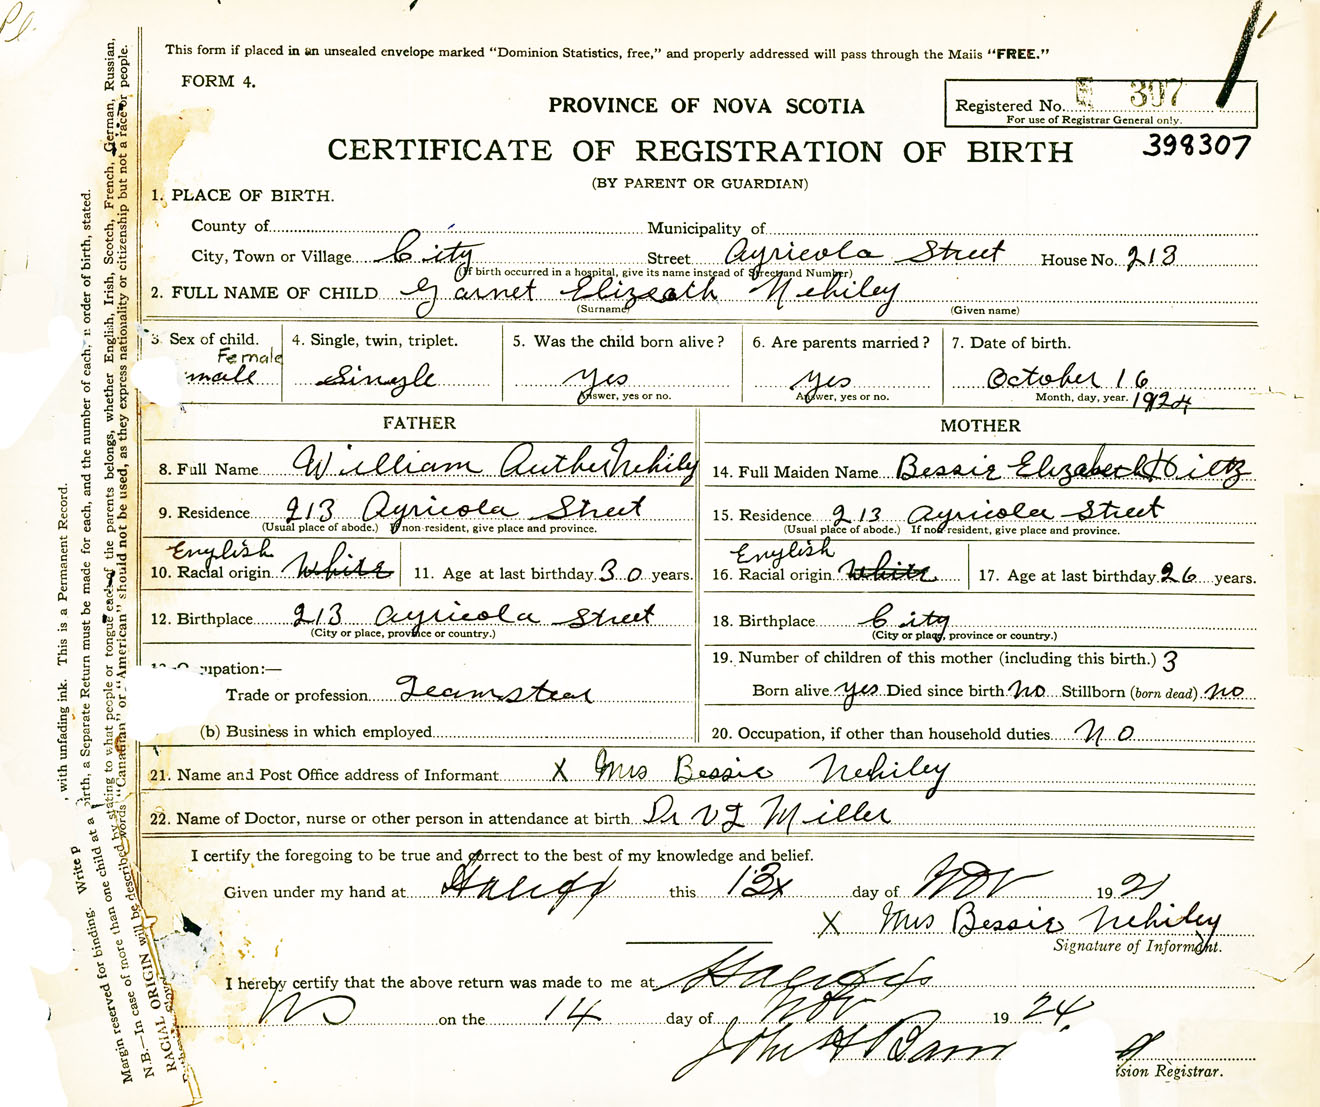 This form if placed in an unsealed envelope marked "Dominion Statistics, free," and properly addressed will pass through the Mails "FREE."
FORM 4.
PROVINCE OF NOVA SCOTIA
Registered No. 307
For use of Registrar General only.
CERTIFICATE OF REGISTRATION OF BIRTH
398307
(BY PARENT OR GUARDIAN)
1. PLACE OF BIRTH.
County of Municipality of
City, Town or Village City Street Agricola Street House No. 213
(If birth occurred in a hospital, give its name instead of Street and Number)
2. FULL NAME OF CHILD Garnet Elizeath Nehiley
(Surname) (Given name)
3 Sex of child. 4. Single, twin, triplet. 5. Was the child born alive? 6. Are parents married? 7. Date of birth.
Female
male Single Yes Yes October 16
Answer, yes or no. Answer, yes or no. Month, day, year. 1924
FATHER MOTHER
8. Full Name William Auther Nehily 14. Full Maiden Name Bessie Elizabeth Hiltz
9. Residence 213 Agricola Street 15. Residence 213 Agricola Street
(Usual place of abode.) If non-resident, give place and province. (Usual place of abode.) If non-resident, give place and province.
English English
10. Racial origin White 11. Age at last birthday. 30 years. 16. Racial origin White 17. Age at last birthday. 26 years.
12. Birthplace 213 Agricola Street 18. Birthplace City
(City or place, province or country.) (City or place, province or country.)
upation:— 19. Number of children of this mother (including this birth.) 3
Trade or profession Teamstear Born alive yes Died since birth No Stillborn (born dead) No
(b) Business in which employed 20. Occupation, if other than household duties No
21. Name and Post Office address of Informant X Mrs Bessie Nehiley
22. Name of Doctor, nurse or other person in attendance at birth Dr V L Miller
I certify the foregoing to be true and correct to the best of my knowledge and belief.
Given under my hand at Halifax this 13 day of Nov 192
X Mrs Bessie Nehiley
Signature of Informant.
I hereby certify that the above return was made to me at Halifax
NS on the 14 day of Nov 1924
John H Barn
ision Registrar.
Margin reserved for binding. Write P , with unfading ink. This is a Permanent Record.
N.B.—In case of more than one child at a birth, a Separate Return must be made for each, and the number of each, in order of birth, stated.
RACIAL ORIGIN will be described by stating to what people or tongue each of the parents belongs, whether English, Irish, Scotch, French, German, Russian,
words "Canadian" or "American" should not be used, as they express nationality or citizenship but not a race or people.